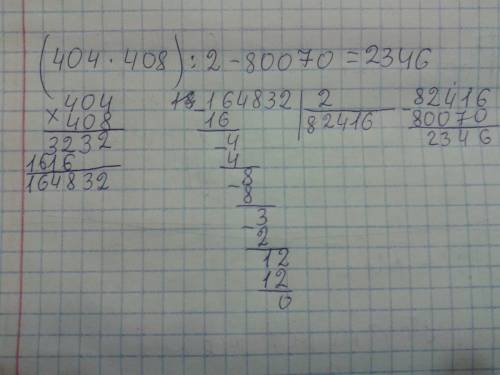 (404 · 408) : 2 - 80070 = 2346
× 404
408
3232
1616
164832
- 164832 | 2
82416
16
- 4
4
- 8
8
- 3
2
12
12
0
- 82416
80070
2346